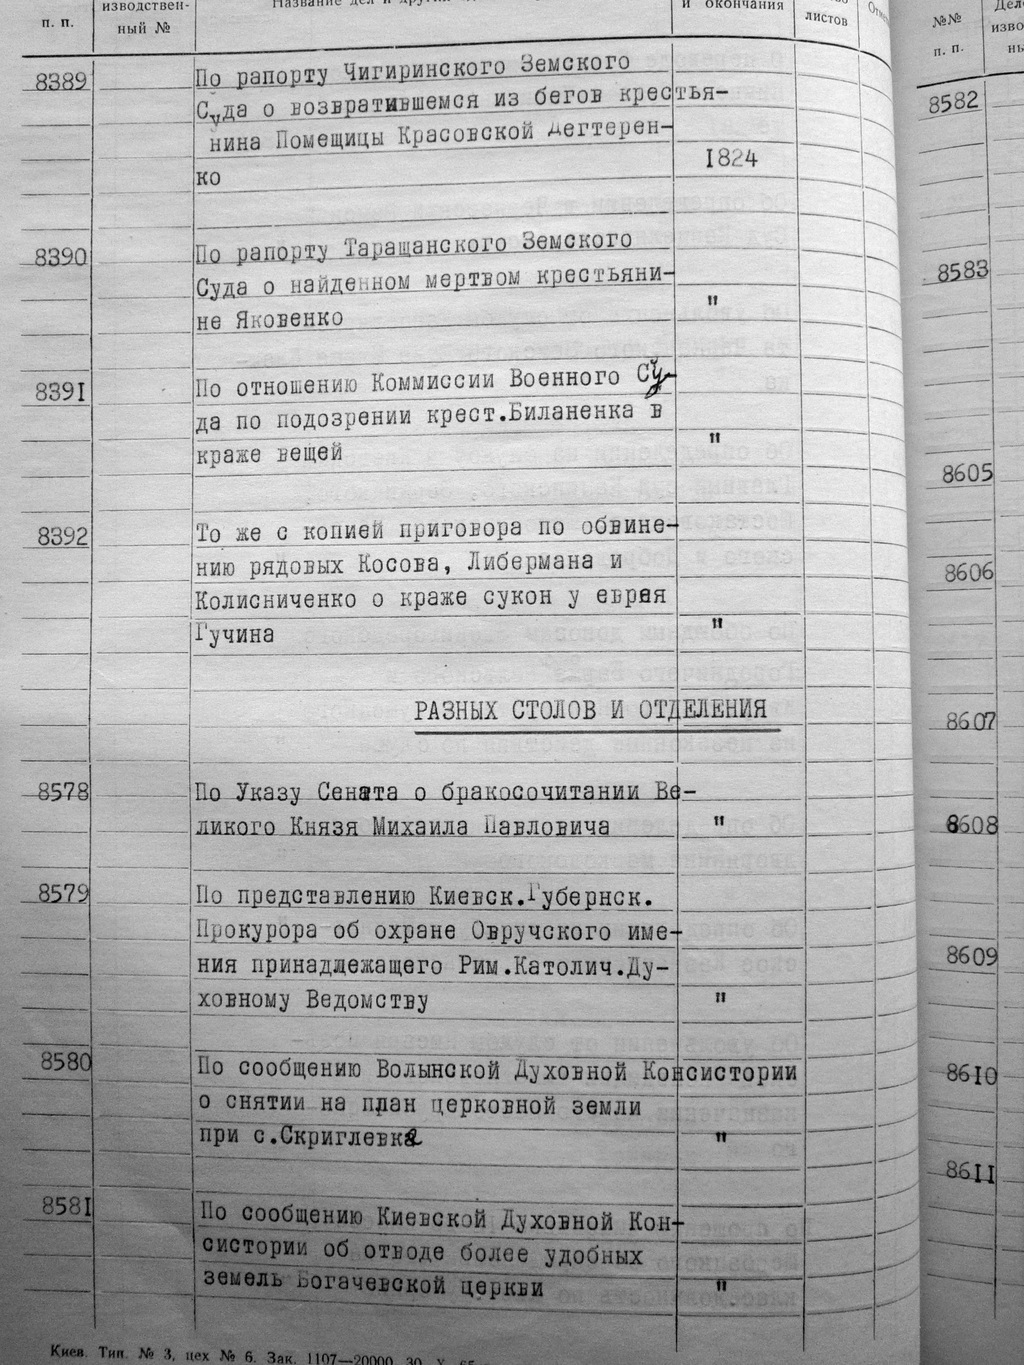 п. п.
изводствен-
ный №
и окончания
листов
8389
По рапорту Чигиринского Земского
Суда о возвратившемся из бегов крестья-
нина Помещицы Красовской Дегтерен-
ко
1824
8390
По рапорту Таращанского Земского
Суда о найденном мертвом крестьяни-
не Яковенко "
8391
По отношению Коммиссии Военного Су-
да по подозрении крест.Биланенка в
краже вещей "
8392
То же с копией приговора по обвине-
нию рядовых Косова, Либермана и
Колисниченко о краже сукон у еврея
Гучина "
РАЗНЫХ СТОЛОВ И ОТДЕЛЕНИЯ
8578
По Указу Сената о бракосочитании Ве-
ликого Князя Михаила Павловича "
8579
По представлению Киевск.Губернск.
Прокурора об охране Овручского име-
ния принадлежащего Рим.Католич.Ду-
ховному Ведомству "
8580
По сообщению Волынской Духовной Консистории
о снятии на план церковной земли
при с.Скриглевка "
8581
По сообщению Киевской Духовной Кон-
систории об отводе более удобных
земель Богачевской церкви "
Киев. Тип. № 3, цех № 6. Зак. 1107—20000. 30. X.
№№
п. п.
8582
8583
8605
8606
8607
8608
8609
8610
8611